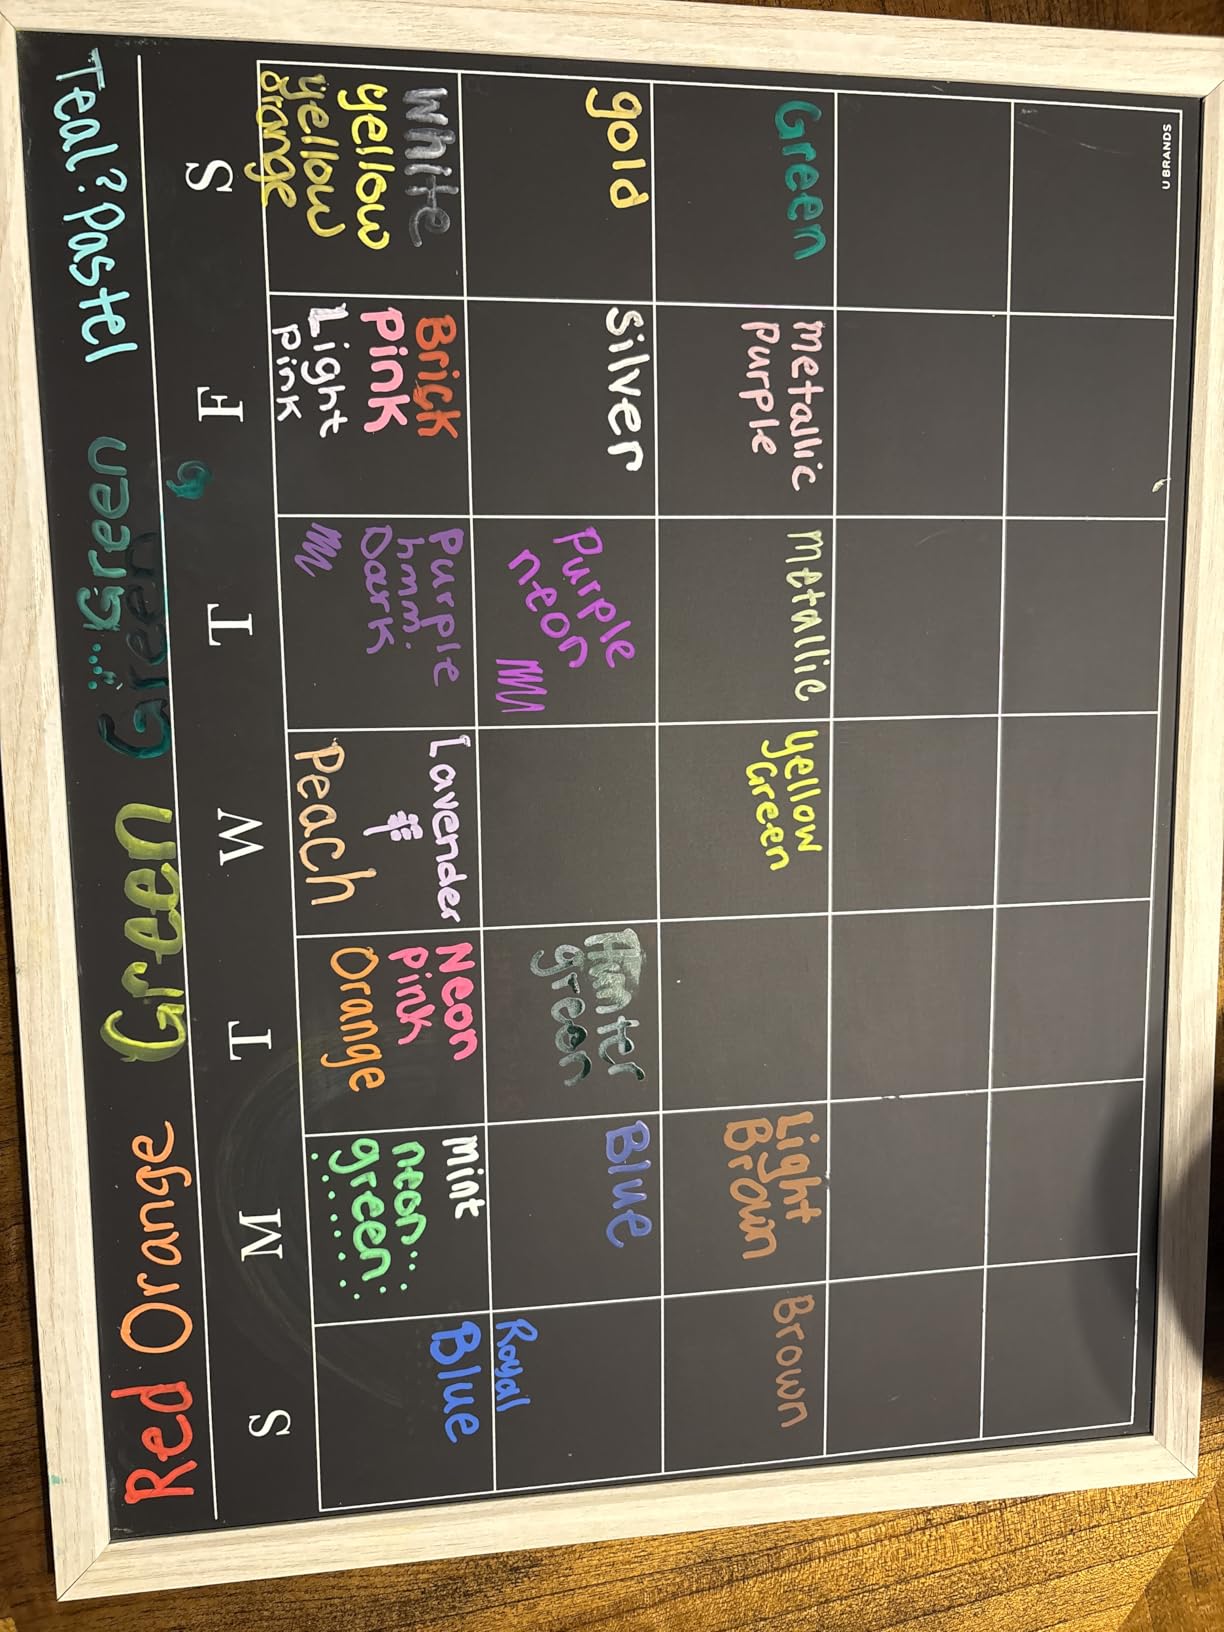 Red Orange Green Green Green
Teal? Pastel
S M T W T F S
White
yellow
yellow
orange
Brick
Pink
Light
pink
Purple
hmm.
Dark
Lavender
Peach
Neon
pink
Orange
Mint
neon
green
Royal
Blue
gold
Silver
Purple
neon
Hunter
green
Blue
Green
Metallic
Purple
Metallic
yellow
Green
Light
Brown
Brown
U BRANDS